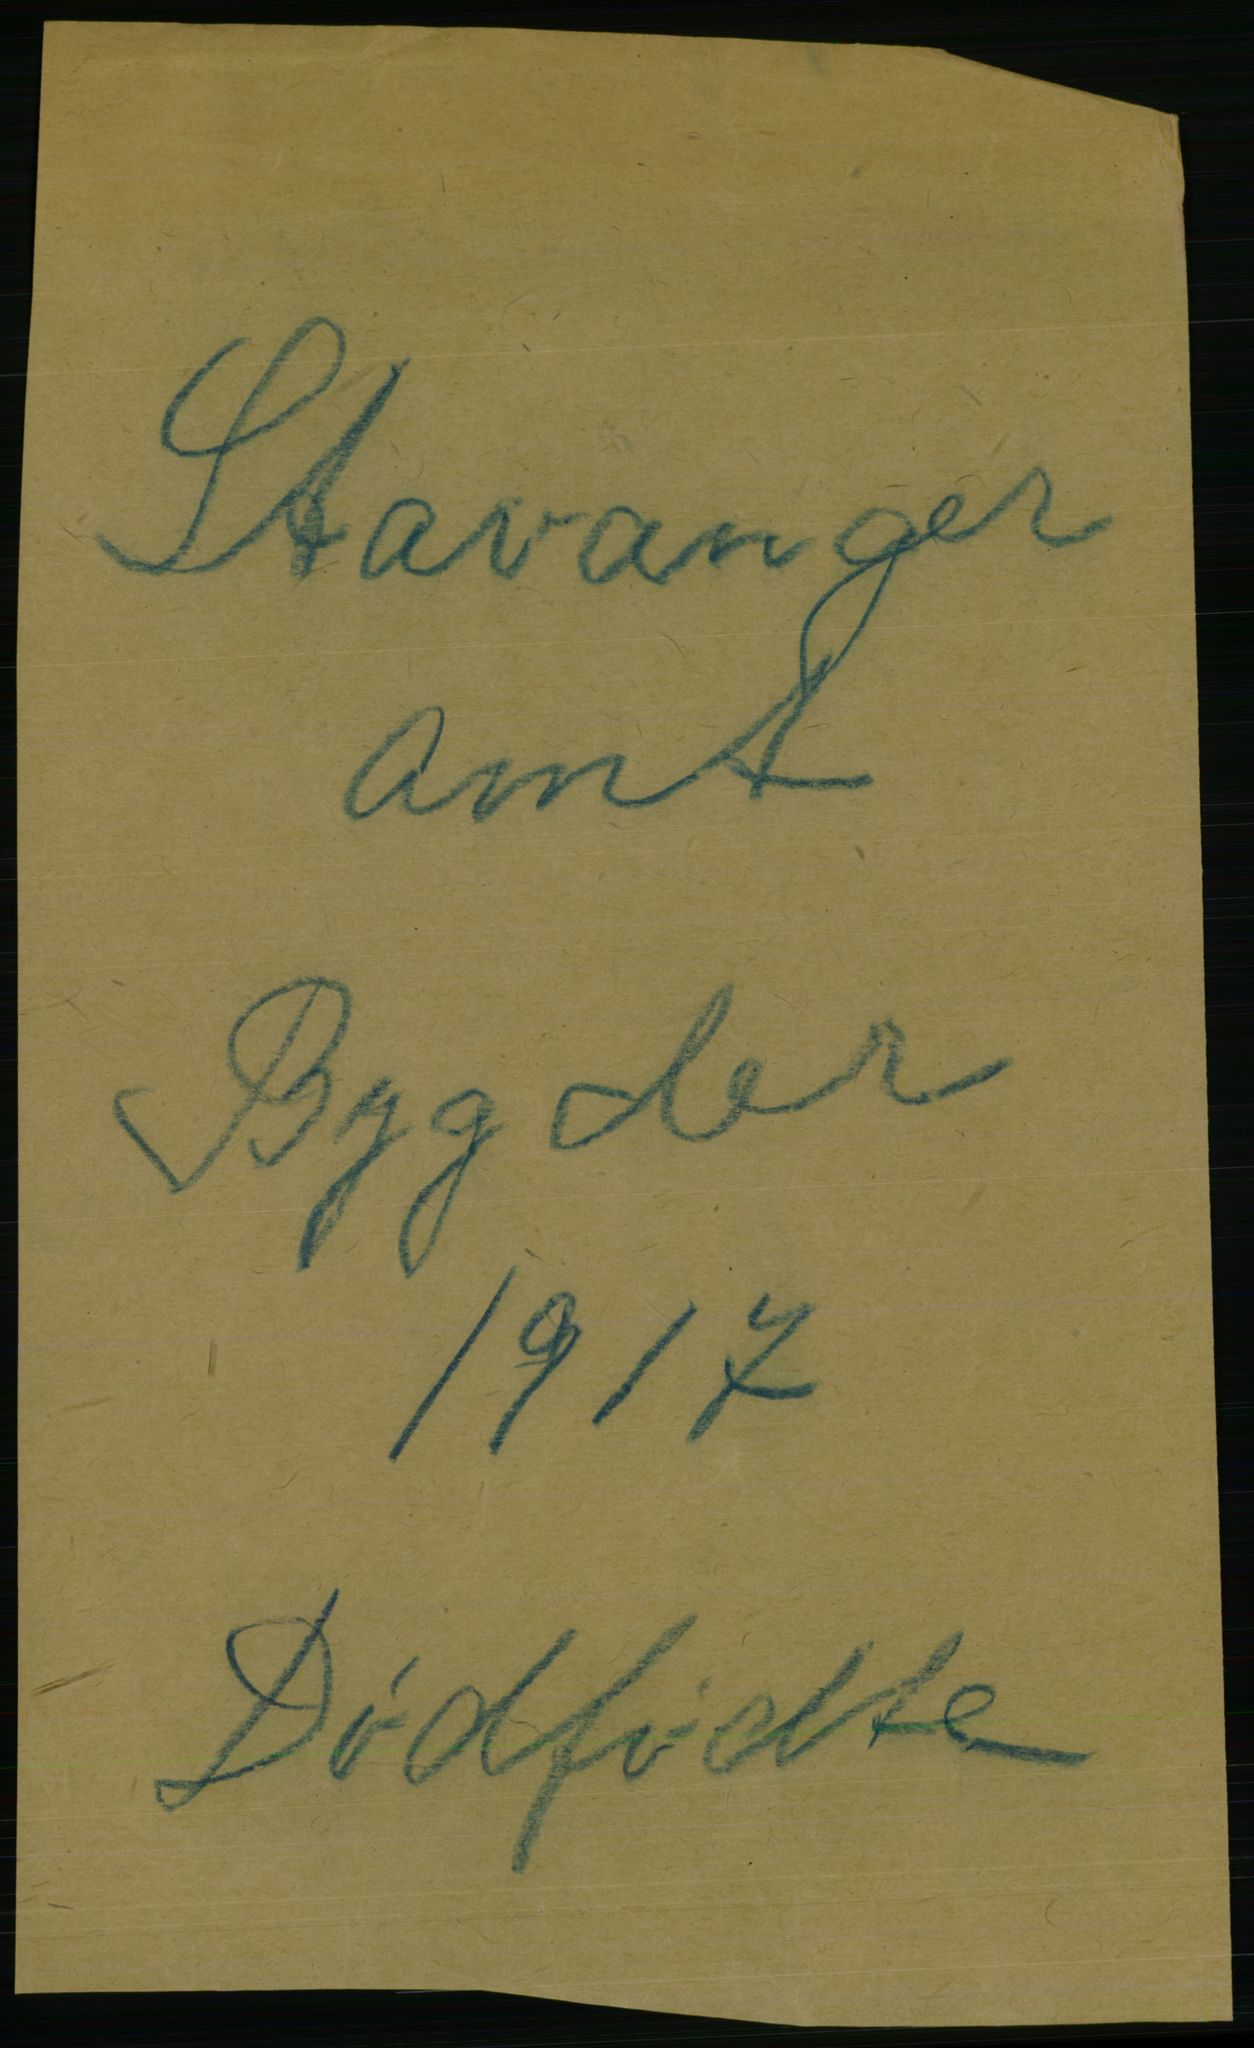 Stavanger
amt
Bygder
1917
Dødfødte